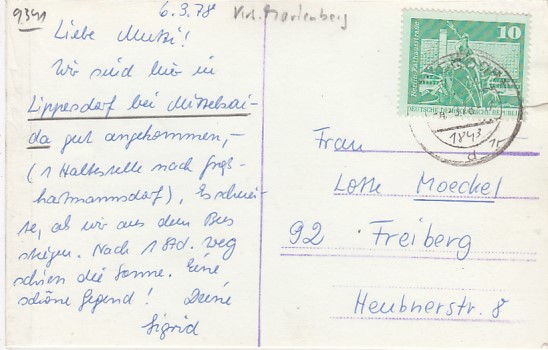 9341
6.3.78
Krs. Marienberg
Liebe Mutti!
Wir sind hier in
Lippersdorf bei Mittelsai-
da gut angekommen, –
(1 Haltestelle nach Groß-
hartmannsdorf), Es schnei-
te, als wir aus dem Bus
stiegen. Nach 1 Std. Weg
schien die Sonne. Eine
schöne Gegend! Deine
Sigrid
10
Berlin, Rathausstraße
1843
d
Frau
Lotte Moeckel
92 Freiberg
Heubnerstr. 8